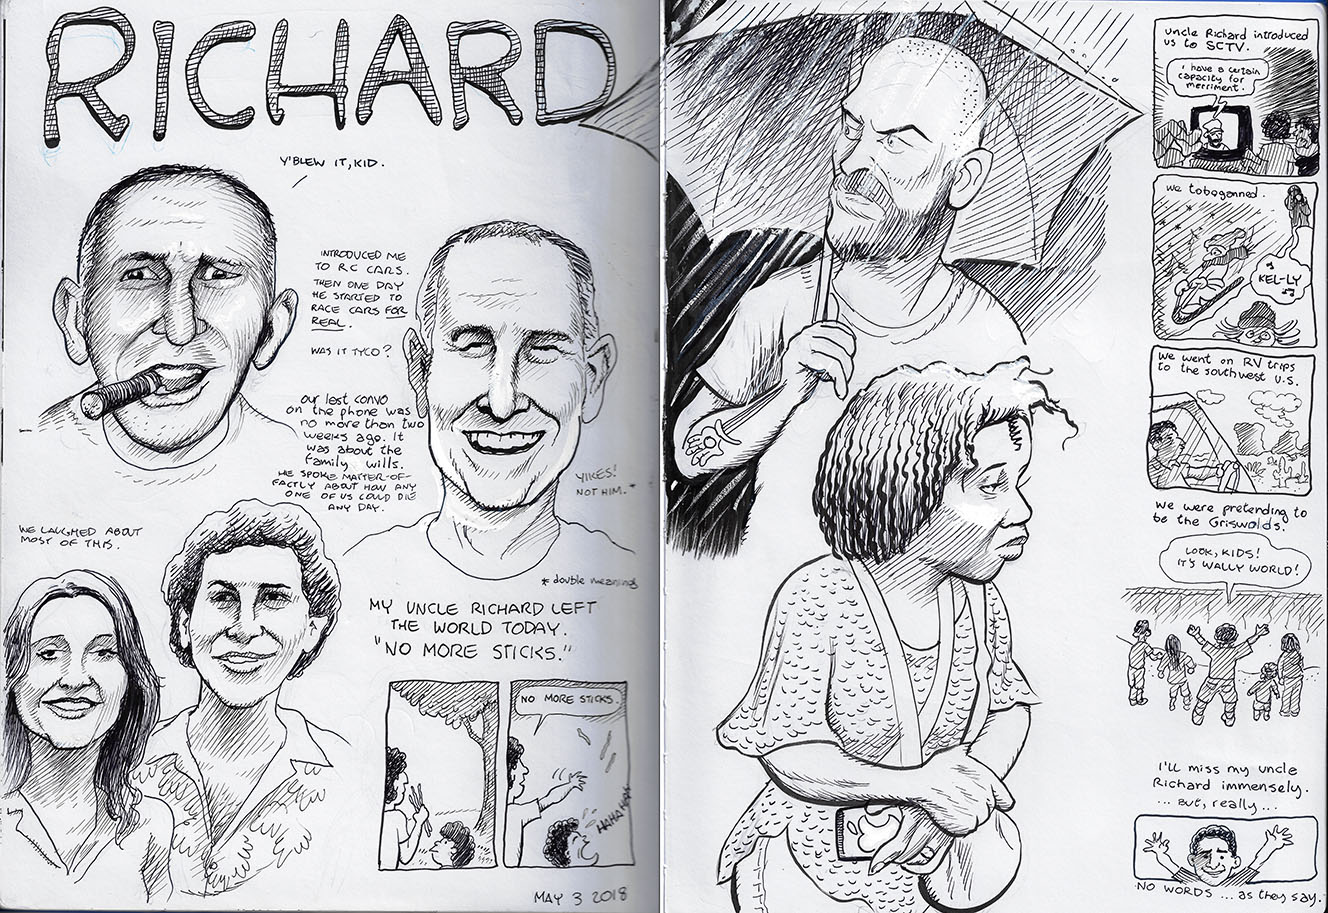 RICHARD
Y'BLEW IT, KID.
INTRODUCED ME
TO RC CARS.
THEN ONE DAY
HE STARTED TO
RACE CARS FOR
REAL.
WAS IT TYCO?
our last convo
on the phone was
no more than two
weeks ago. It
was about the
family wills.
HE SPOKE MATTER-OF-
FACTLY ABOUT HOW ANY
ONE OF US COULD DIE
ANY DAY.
YIKES!
NOT HIM.*
WE LAUGHED ABOUT
MOST OF THIS.
* double meanings
MY UNCLE RICHARD LEFT
THE WORLD TODAY.
"NO MORE STICKS."
NO MORE STICKS.
HAHAHAHA
MAY 3 2018
uncle Richard introduced
us to SCTV.
I have a certain
capacity for
merriment.
we tobogganned.
KEL-LY
we went on RV trips
to the southwest U.S.
we were pretending to
be the Griswolds.
LOOK, KIDS!
IT'S WALLY WORLD!
I'll miss my uncle
Richard immensely.
... But, really ...
NO WORDS ... as they say.